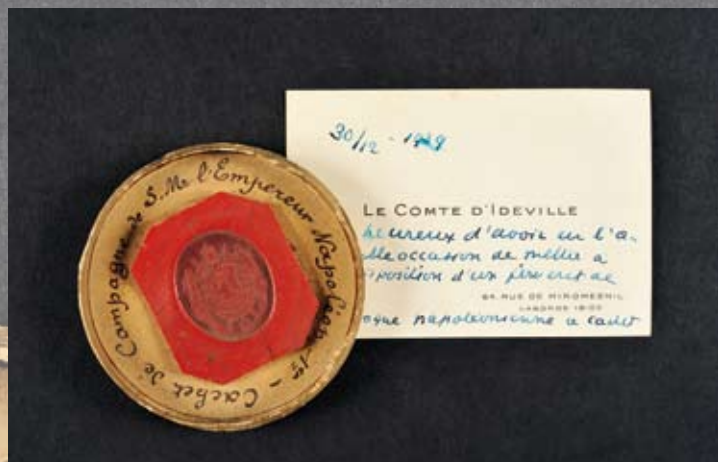 Cachet de Campagne de S. M. l'Empereur Napoléon 1er -
30/12 - 1929
LE COMTE D'IDEVILLE
heureux d'avoir eu l'a-
occasion de mettre a
d'un
64 RUE DE MIROMESNIL
LABORDE
napoléonienne a